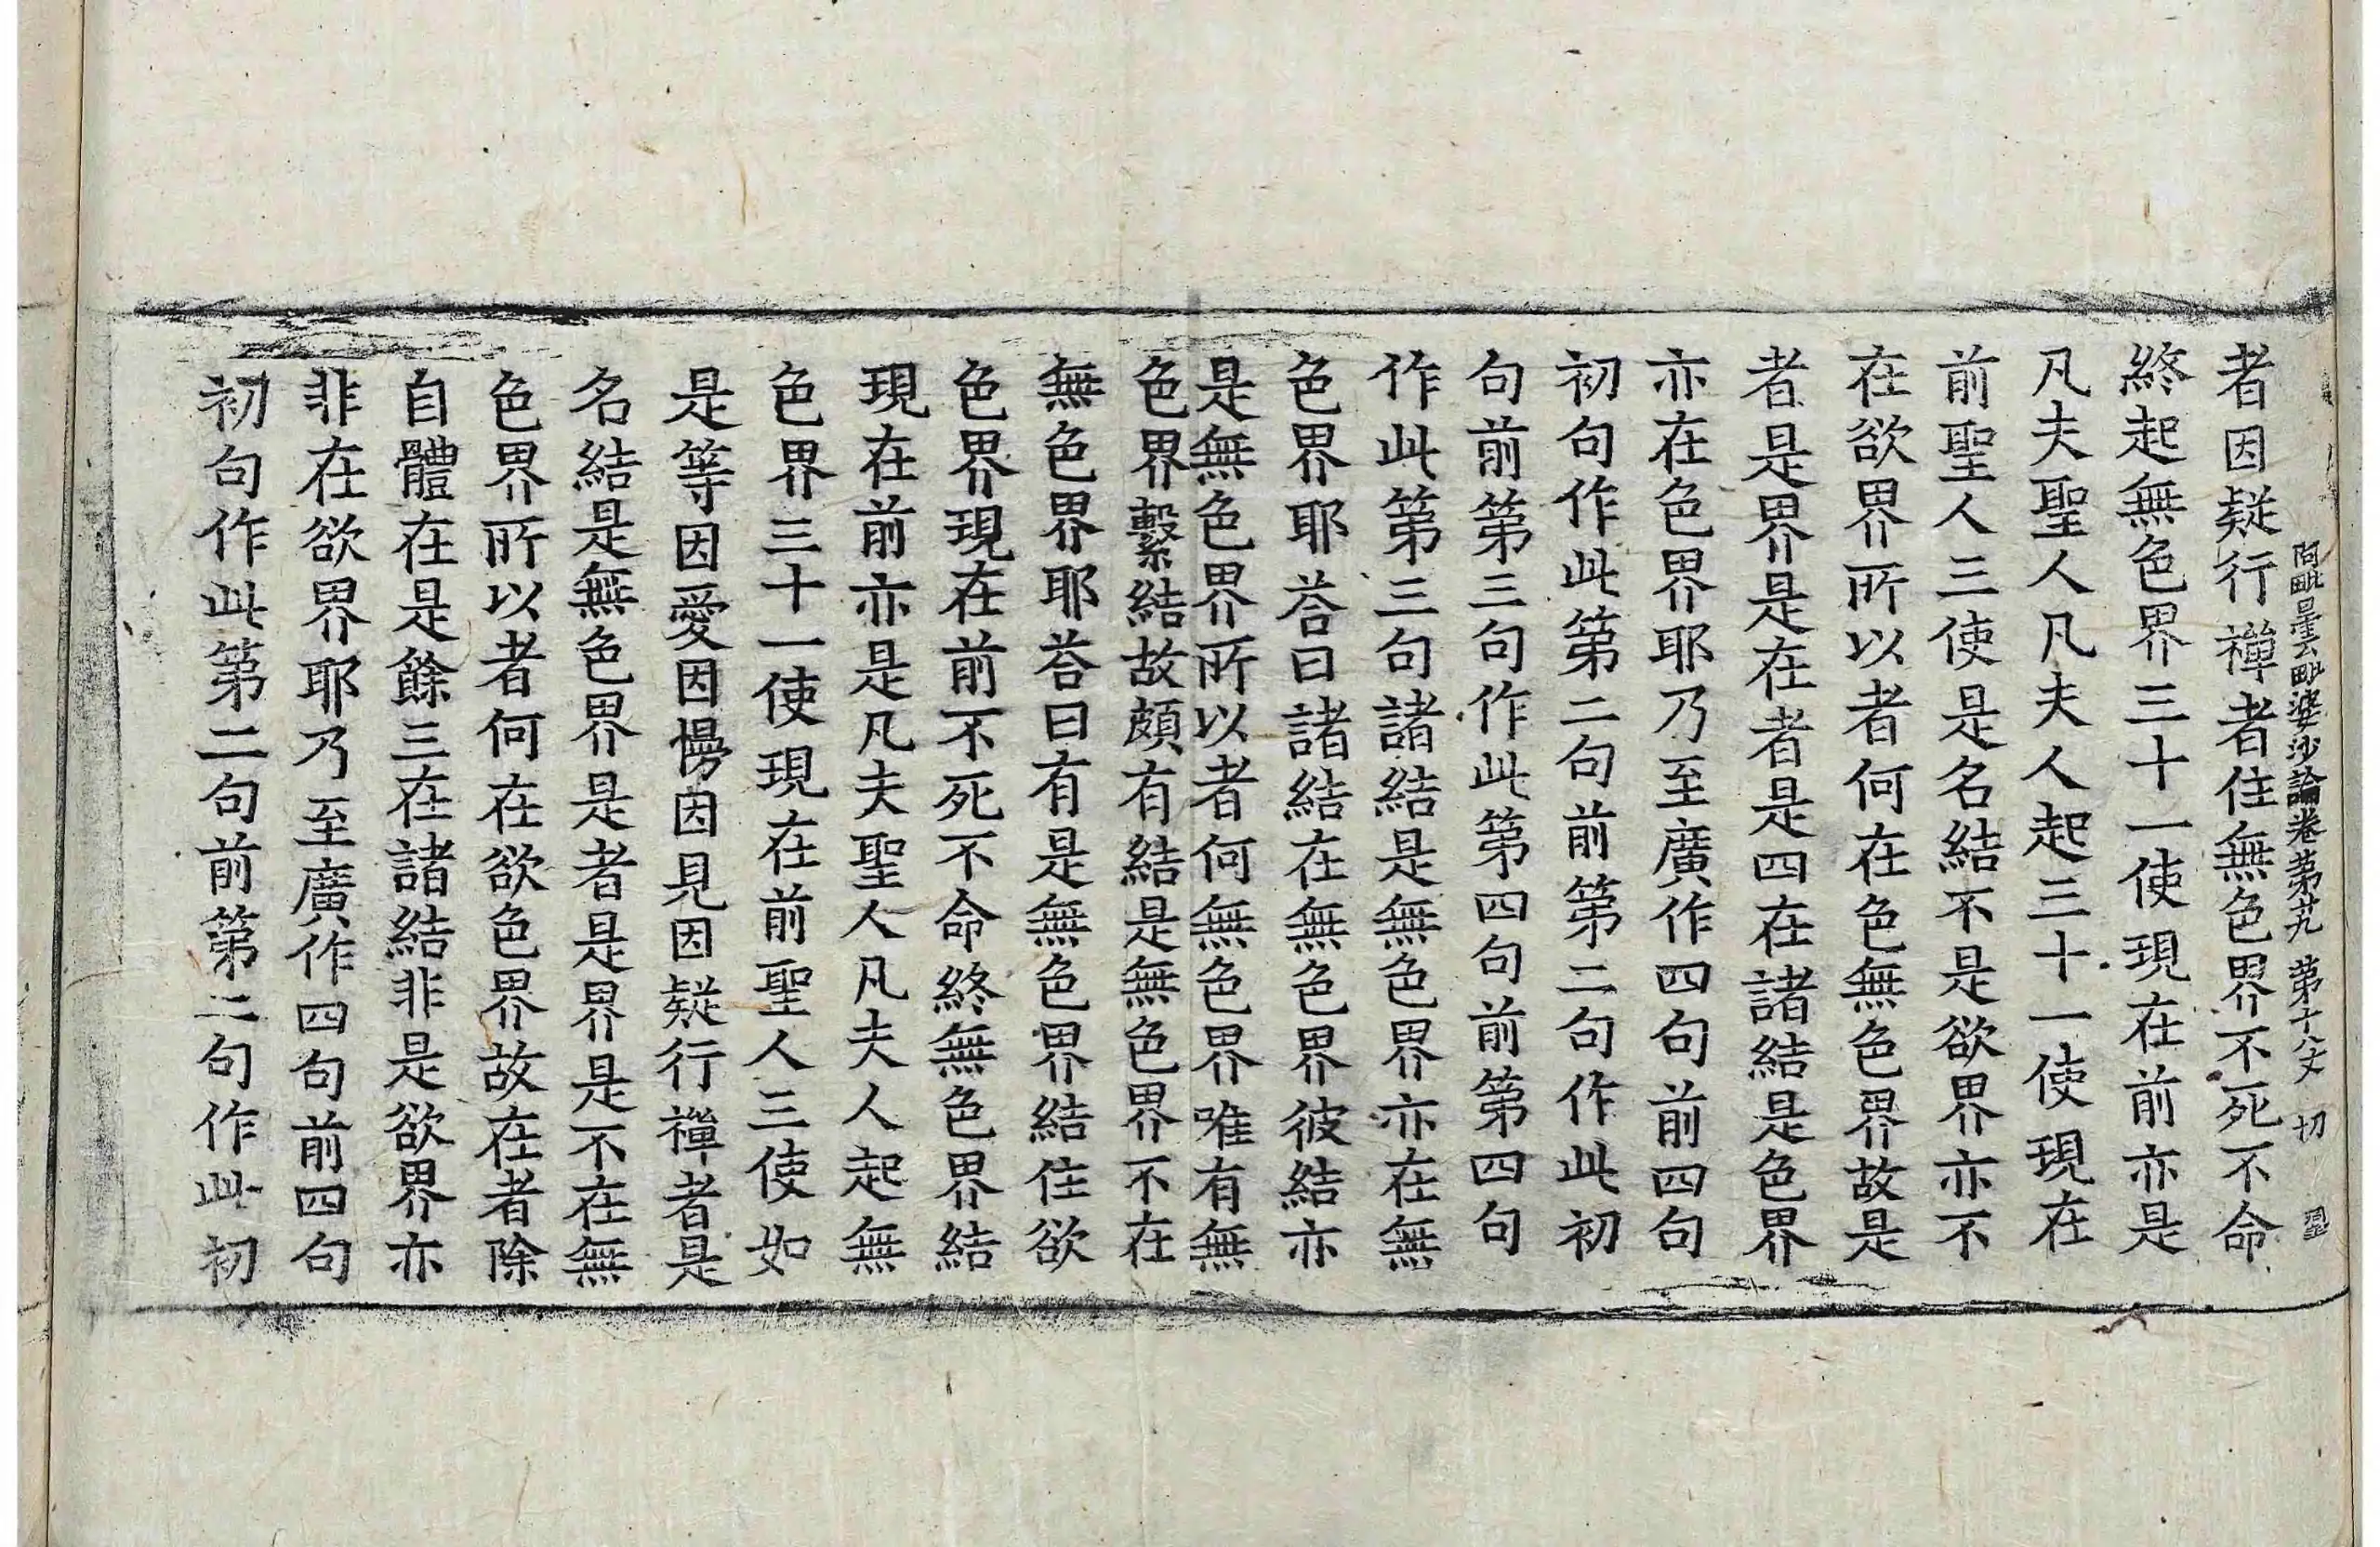 阿毗曇毗婆沙論卷第廿九　第十八丈　切
者因疑行禪者住無色界不死不命
終起無色界三十一使現在前亦是
凡夫聖人凡夫人起三十一使現在
前聖人三使是名結不是欲界亦不
在欲界所以者何在色無色界故是
者是界是在者是四在諸結是色界
亦在色界耶乃至廣作四句前四句
初句作此第二句前第二句作此初
句前第三句作此第四句前第四句
作此第三句諸結是無色界亦在無
色界耶荅曰諸結在無色界彼結亦
是無色界所以者何無色界唯有無
色界繫結故頗有結是無色界不在
無色界耶荅曰有是無色界結住欲
色界現在前不死不命終無色界結
現在前亦是凡夫聖人凡夫人起無
色界三十一使現在前聖人三使如
是等因愛因慢因見因疑行禪者是
名結是無色界是者是界是不在無
色界所以者何在欲色界故在者除
自體在是餘三在諸結非是欲界亦
非在欲界耶乃至廣作四句前四句
初句作此第二句前第二句作此初